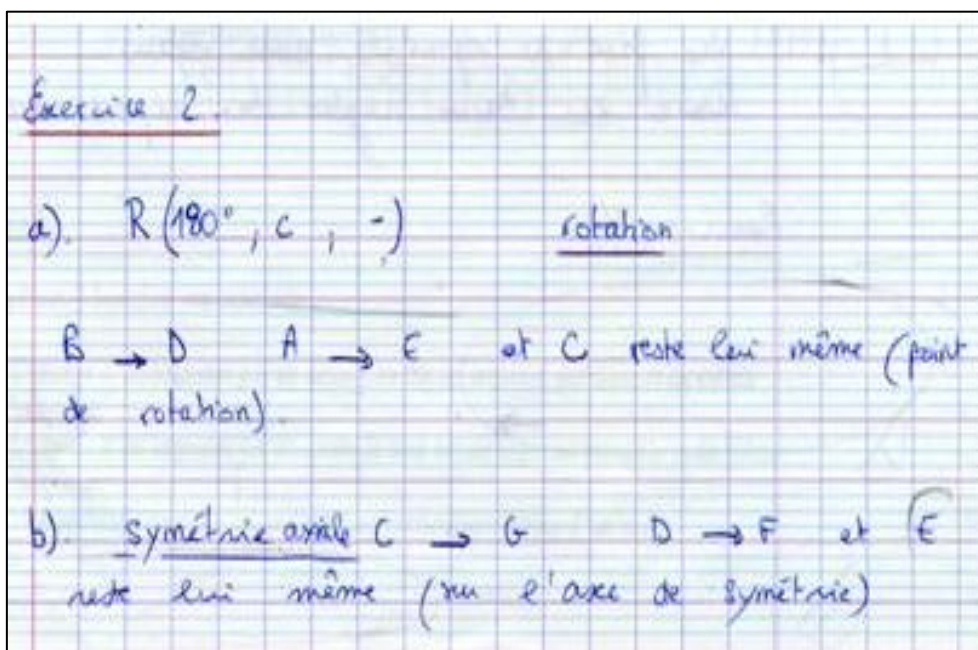 Exercice 2.
a). R(180°, c, -) rotation
B → D A → E et C reste lui même (point
de rotation).
b). Symétrie axiale C → G D → F et E
reste lui même (sur l'axe de symétrie)